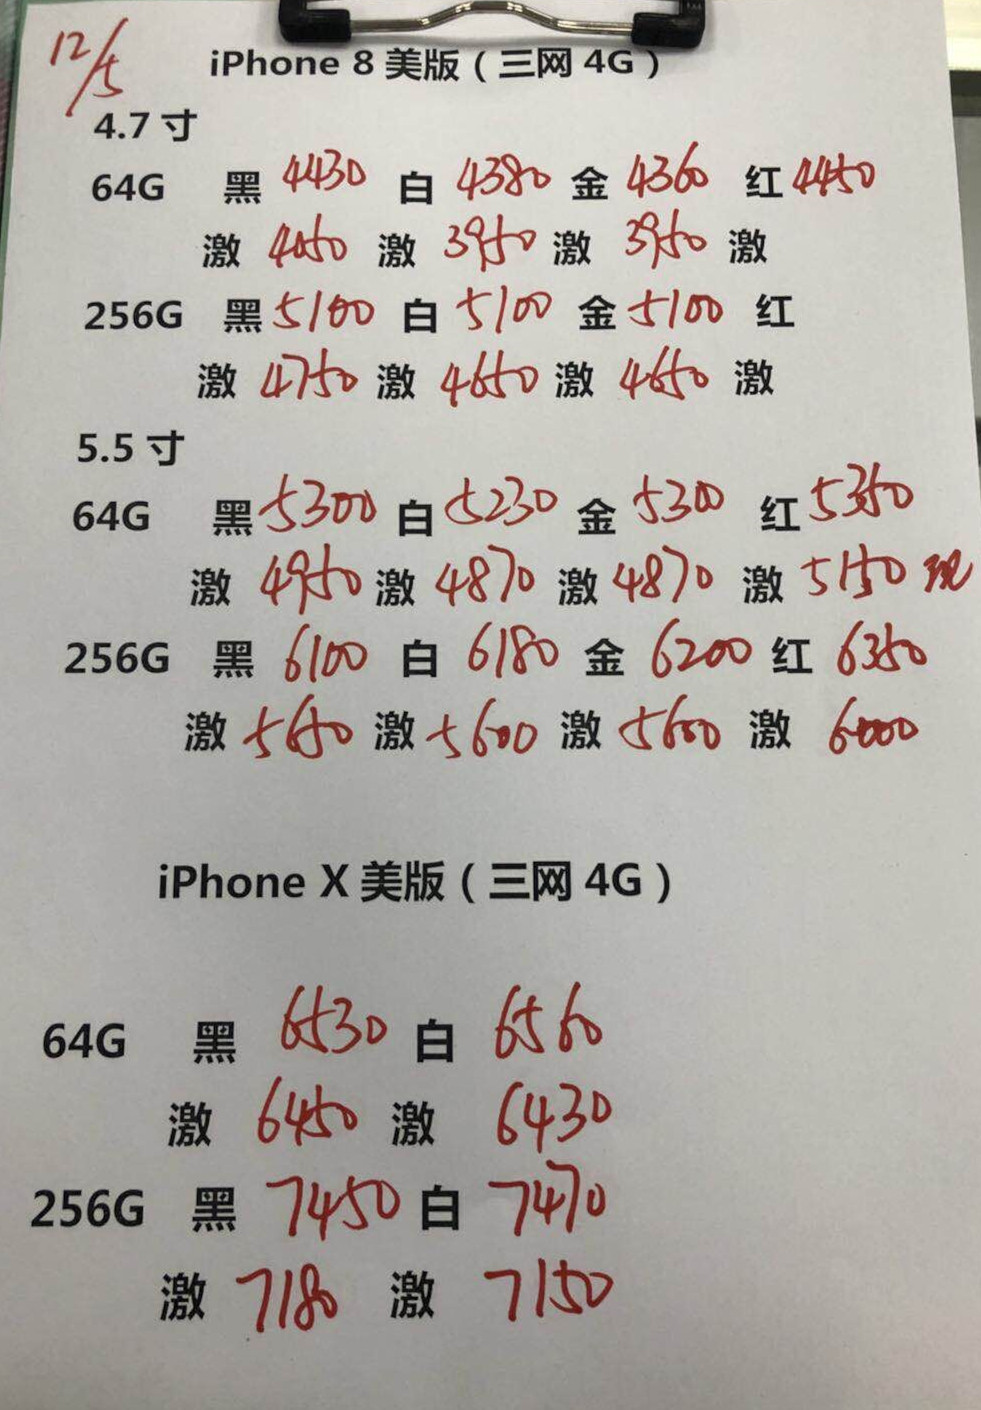 12/5
iPhone 8 美版（三网 4G）
4.7 寸
64G 黑 4430 白 4380 金 4360 红 4450
激 4050 激 3950 激 3950 激
256G 黑 5100 白 5100 金 5100 红
激 4750 激 4650 激 4650 激
5.5 寸
64G 黑 5300 白 5230 金 5300 红 5350
激 4950 激 4870 激 4870 激 5150 现
256G 黑 6100 白 6180 金 6200 红 6350
激 5650 激 5600 激 5600 激 6000
iPhone X 美版（三网 4G）
64G 黑 6530 白 6560
激 6450 激 6430
256G 黑 7450 白 7470
激 7180 激 7150